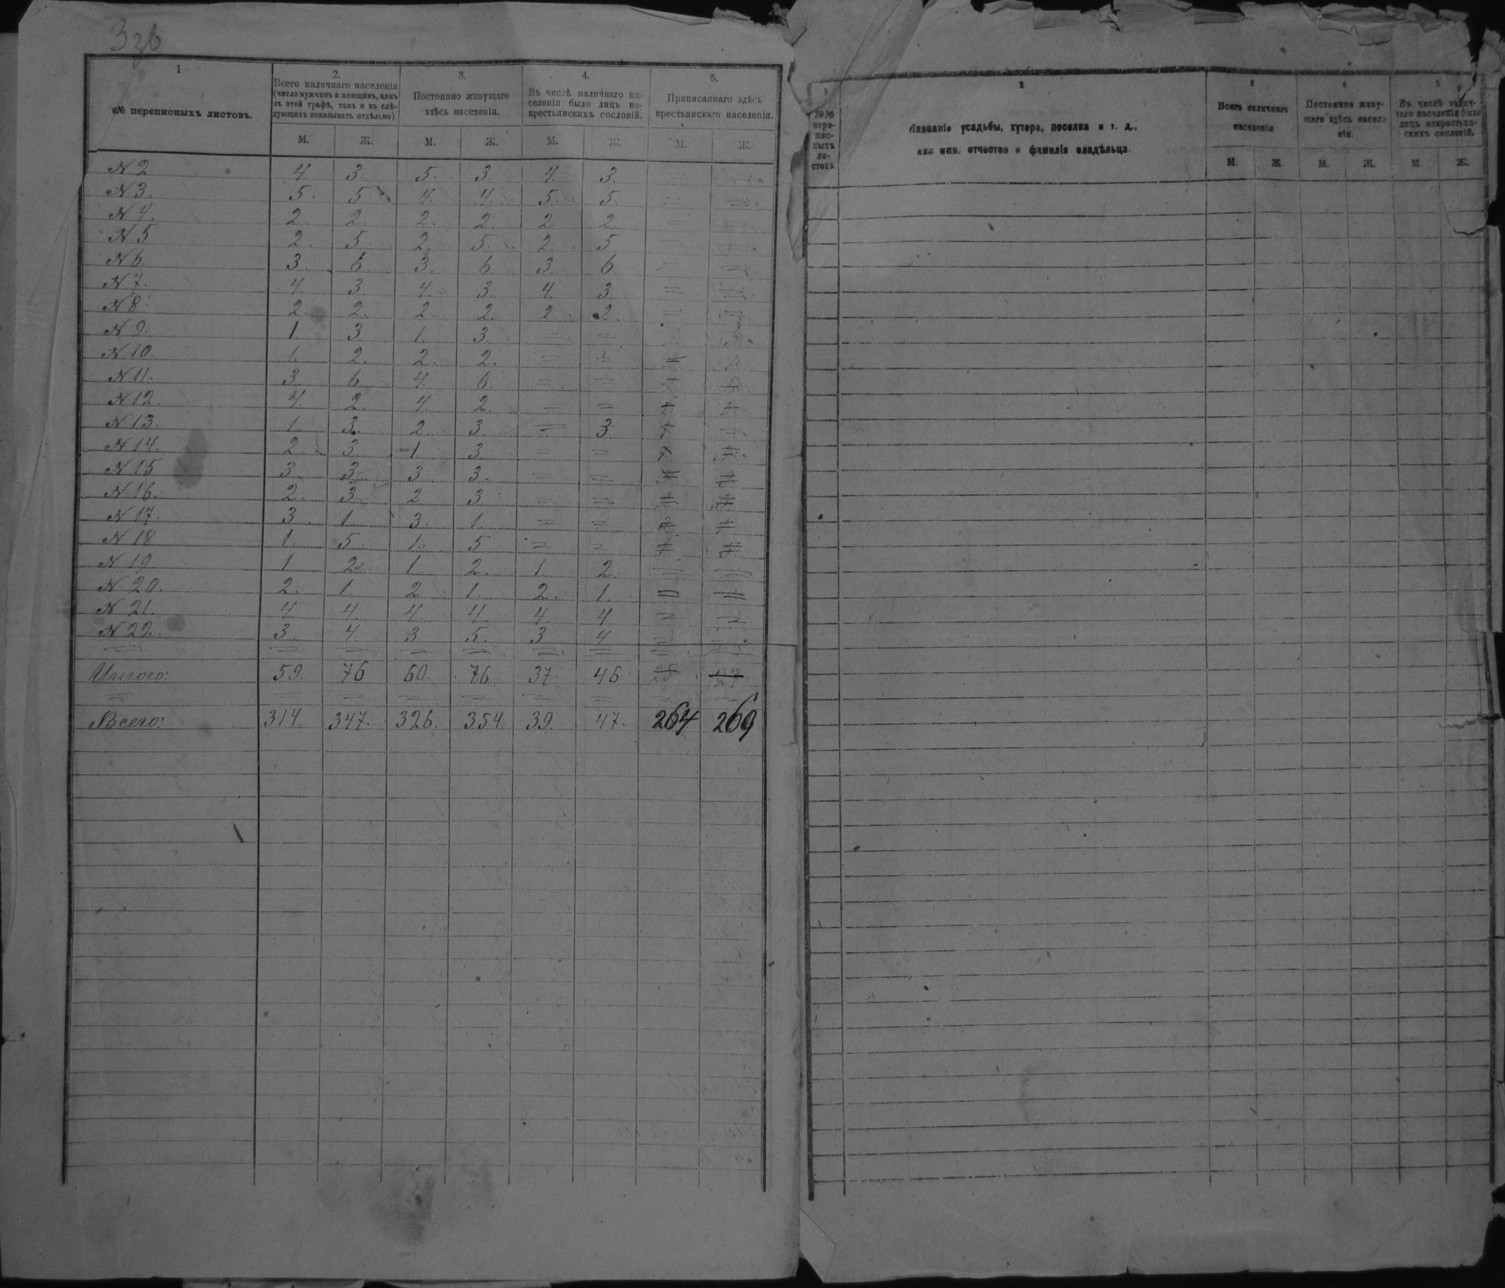 3зв
1
№ переписныхъ листовъ.
2.
Всего наличнаго населенія
(число мужчинъ и женщинъ, какъ
въ этой графѣ, такъ и въ слѣ-
дующихъ показывать отдѣльно)
М. Ж.
3.
Постоянно живущаго
здѣсь населенія.
М. Ж.
4.
Въ числѣ наличнаго на-
селенія было лицъ не-
крестьянскихъ сословій.
М. Ж.
5.
Приписаннаго здѣсь
крестьянскаго населенія.
М. Ж.
N 2 4 3 5 3 4 3
N 3. 5 5 4 4 5 5
N 4. 2 2 2 2 2 2
N 5 2 5 2 5 2 5
N 6 3 6 3 6 3 6
N 7. 4 3 4 3 4 3
N 8 2 2 2 2 2 2
N 9. 1 3 1 3 = =
N 10. 1 2 2 2 =
N 11. 3 6 4 6 = =
N 12. 4 2 4 2 = =
N 13. 1 3 2 3 = 3
N 14. 2 3 1 3 = =
N 15 3 3 3 3 = =
N 16. 2 3 2 3 = =
N 17. 3 1 3 1 = =
N 18 1 5 1 5 = =
N 19. 1 2 1 2 1 2
N 20. 2 1 2 1 2 1 = =
N 21. 4 4 4 4 4 4 = =
N 22. 3 4 3 5 3 4
Итого: 59 76 60 76 37 46
Всего: 314 347 326 354 39 47 264 269
1
№№
пере-
пис-
ныхъ
ли-
стовъ
2
Названіе усадьбы, хутора, поселка и т. д.,
или имя, отчество и фамилія владѣльца.
3
Всего наличнаго
населенія
М. Ж.
4
Постоянно живу-
щаго здѣсь населе-
нія.
М. Ж.
5
Въ числѣ налич-
наго населенія было
лицъ некрестьян-
скихъ сословій.
М. Ж.